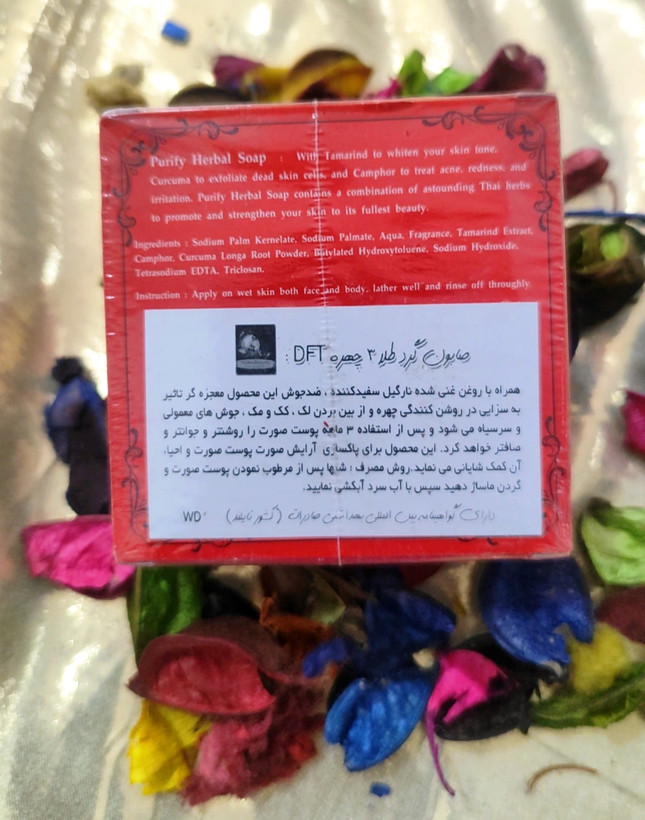 Purify Herbal Soap : With Tamarind to whiten your skin tone,
Curcuma to exfoliate dead skin cells, and Camphor to treat acne, redness, and
irritation. Purify Herbal Soap contains a combination of astounding Thai herbs
to promote and strengthen your skin to its fullest beauty.
Ingredients : Sodium Palm Kernelate, Sodium Palmate, Aqua, Fragrance, Tamarind Extract,
Camphor, Curcuma Longa Root Powder, Butylated Hydroxytoluene, Sodium Hydroxide,
Tetrasodium EDTA, Triclosan.
Instruction : Apply on wet skin both face and body, lather well and rinse off throughly
صابون گرد طلا ۳ چهره DFT :
همراه با روغن غنی شده نارگیل سفیدکننده ، ضدجوش این محصول معجزه گر تاثیر
به سزایی در روشن کنندگی چهره و از بین بردن لک ، کک و مک ، جوش های معمولی
و سرسیاه می شود و پس از استفاده ۳ ماهه پوست صورت را روشنتر و جوانتر و
صافتر خواهد کرد. این محصول برای پاکسازی آرایش صورت پوست صورت و احیاء
آن کمک شایانی می نماید.روش مصرف : شبها پس از مرطوب نمودن پوست صورت و
گردن ماساژ دهید سپس با آب سرد آبکشی نمایید.
دارای گواهینامه بین المللی بهداشتی صادرات (کشور تایلند) WD